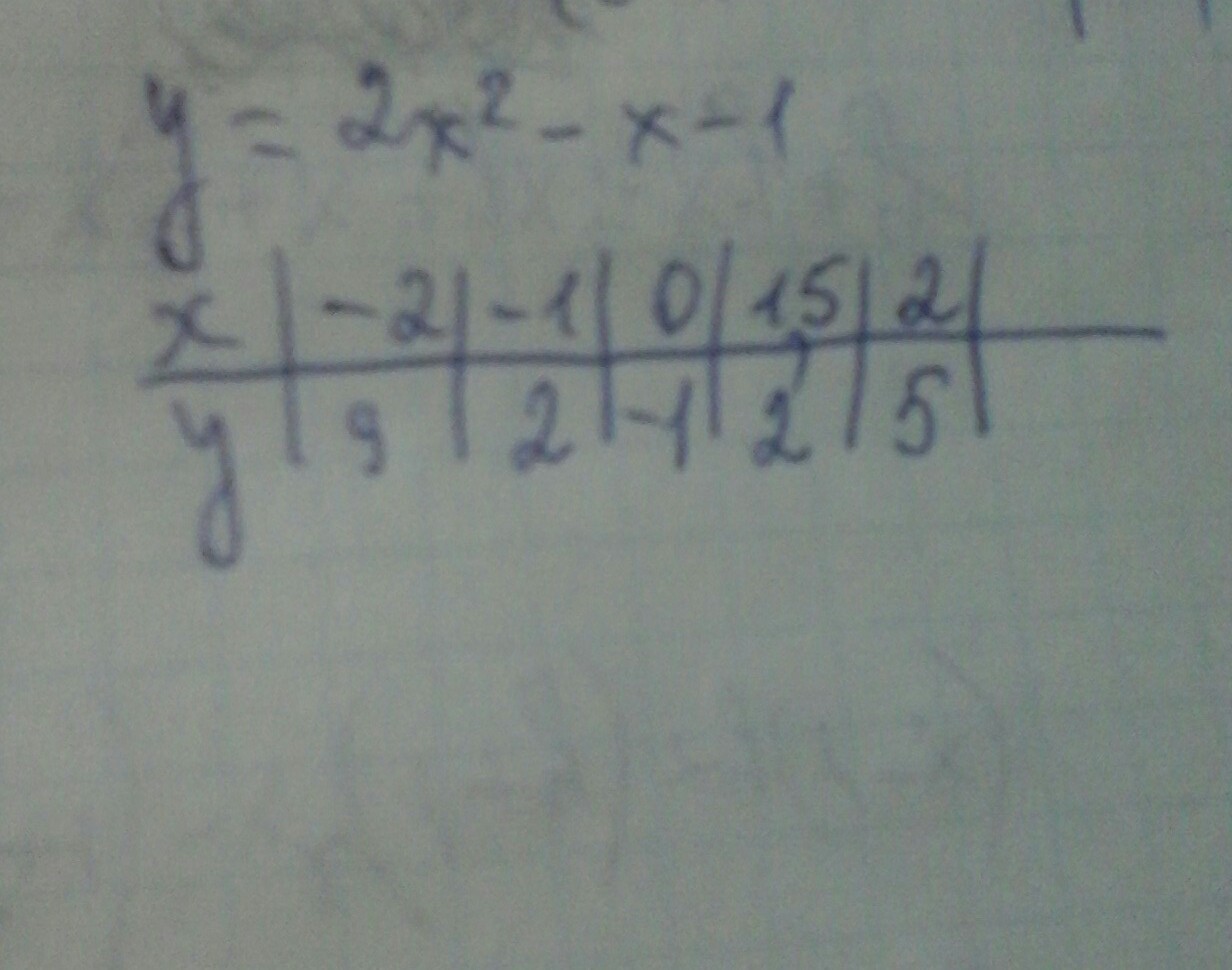 y = 2x² - x - 1
x | -2 | -1 | 0 | 1,5 | 2 |
y | 9 | 2 | -1 | 2 | 5 |